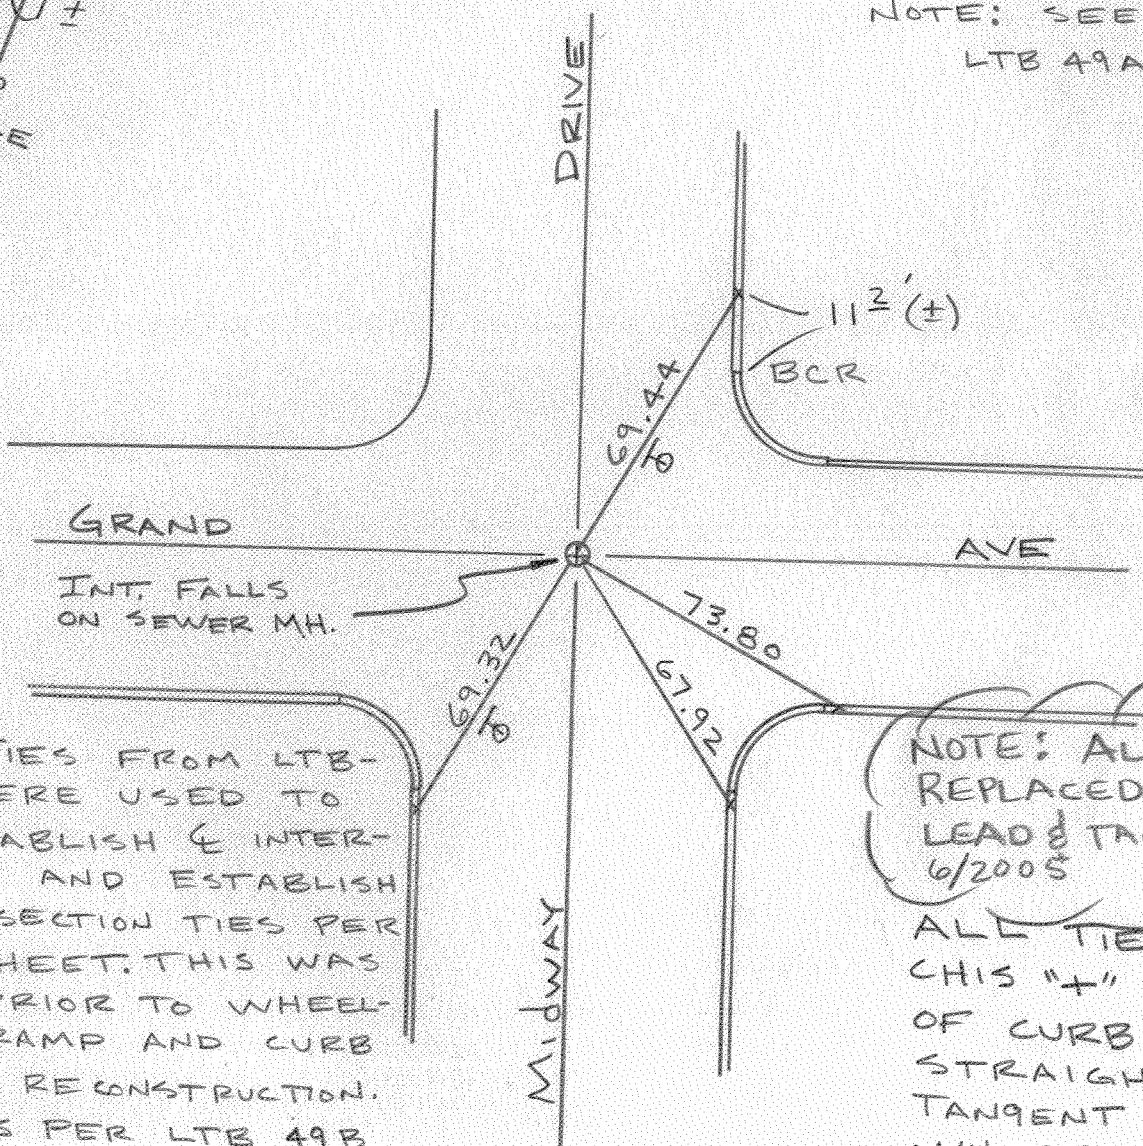 ±
NOTE: SEE
LTB 49A
E
DRIVE
11 2' (±)
BCR
69.44
GRAND
AVE
INT. FALLS
ON SEWER MH.
73.80
69.32
67.92
TIES FROM LTB-
ERE USED TO
ABLISH ℄ INTER-
AND ESTABLISH
SECTION TIES PER
HEET. THIS WAS
RIOR TO WHEEL-
RAMP AND CURB
RECONSTRUCTION.
S PER LTB 49B
MIDWAY
NOTE: AL
REPLACED
LEAD & TA
6/2005
ALL TIE
CHIS "+"
OF CURB
STRAIGH
TANGENT